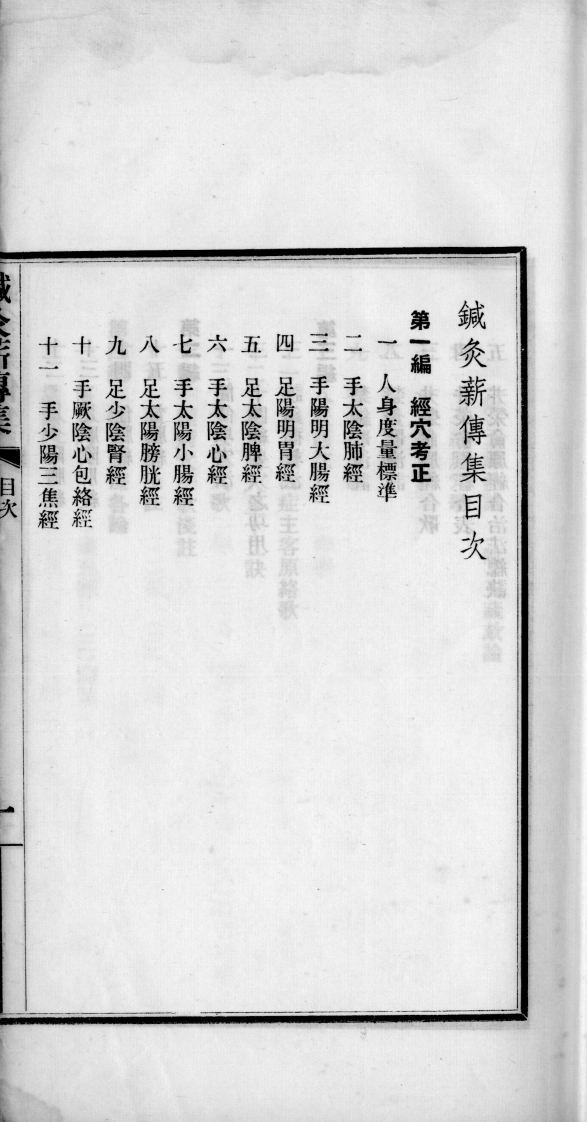 鍼灸薪傳集目次
第一編　經穴考正
一　人身度量標準
二　手太陰肺經
三　手陽明大腸經
四　足陽明胃經
五　足太陰脾經
六　手太陰心經
七　手太陽小腸經
八　足太陽膀胱經
九　足少陰腎經
十　手厥陰心包絡經
十一　手少陽三焦經
鍼灸薪傳集　目次　一